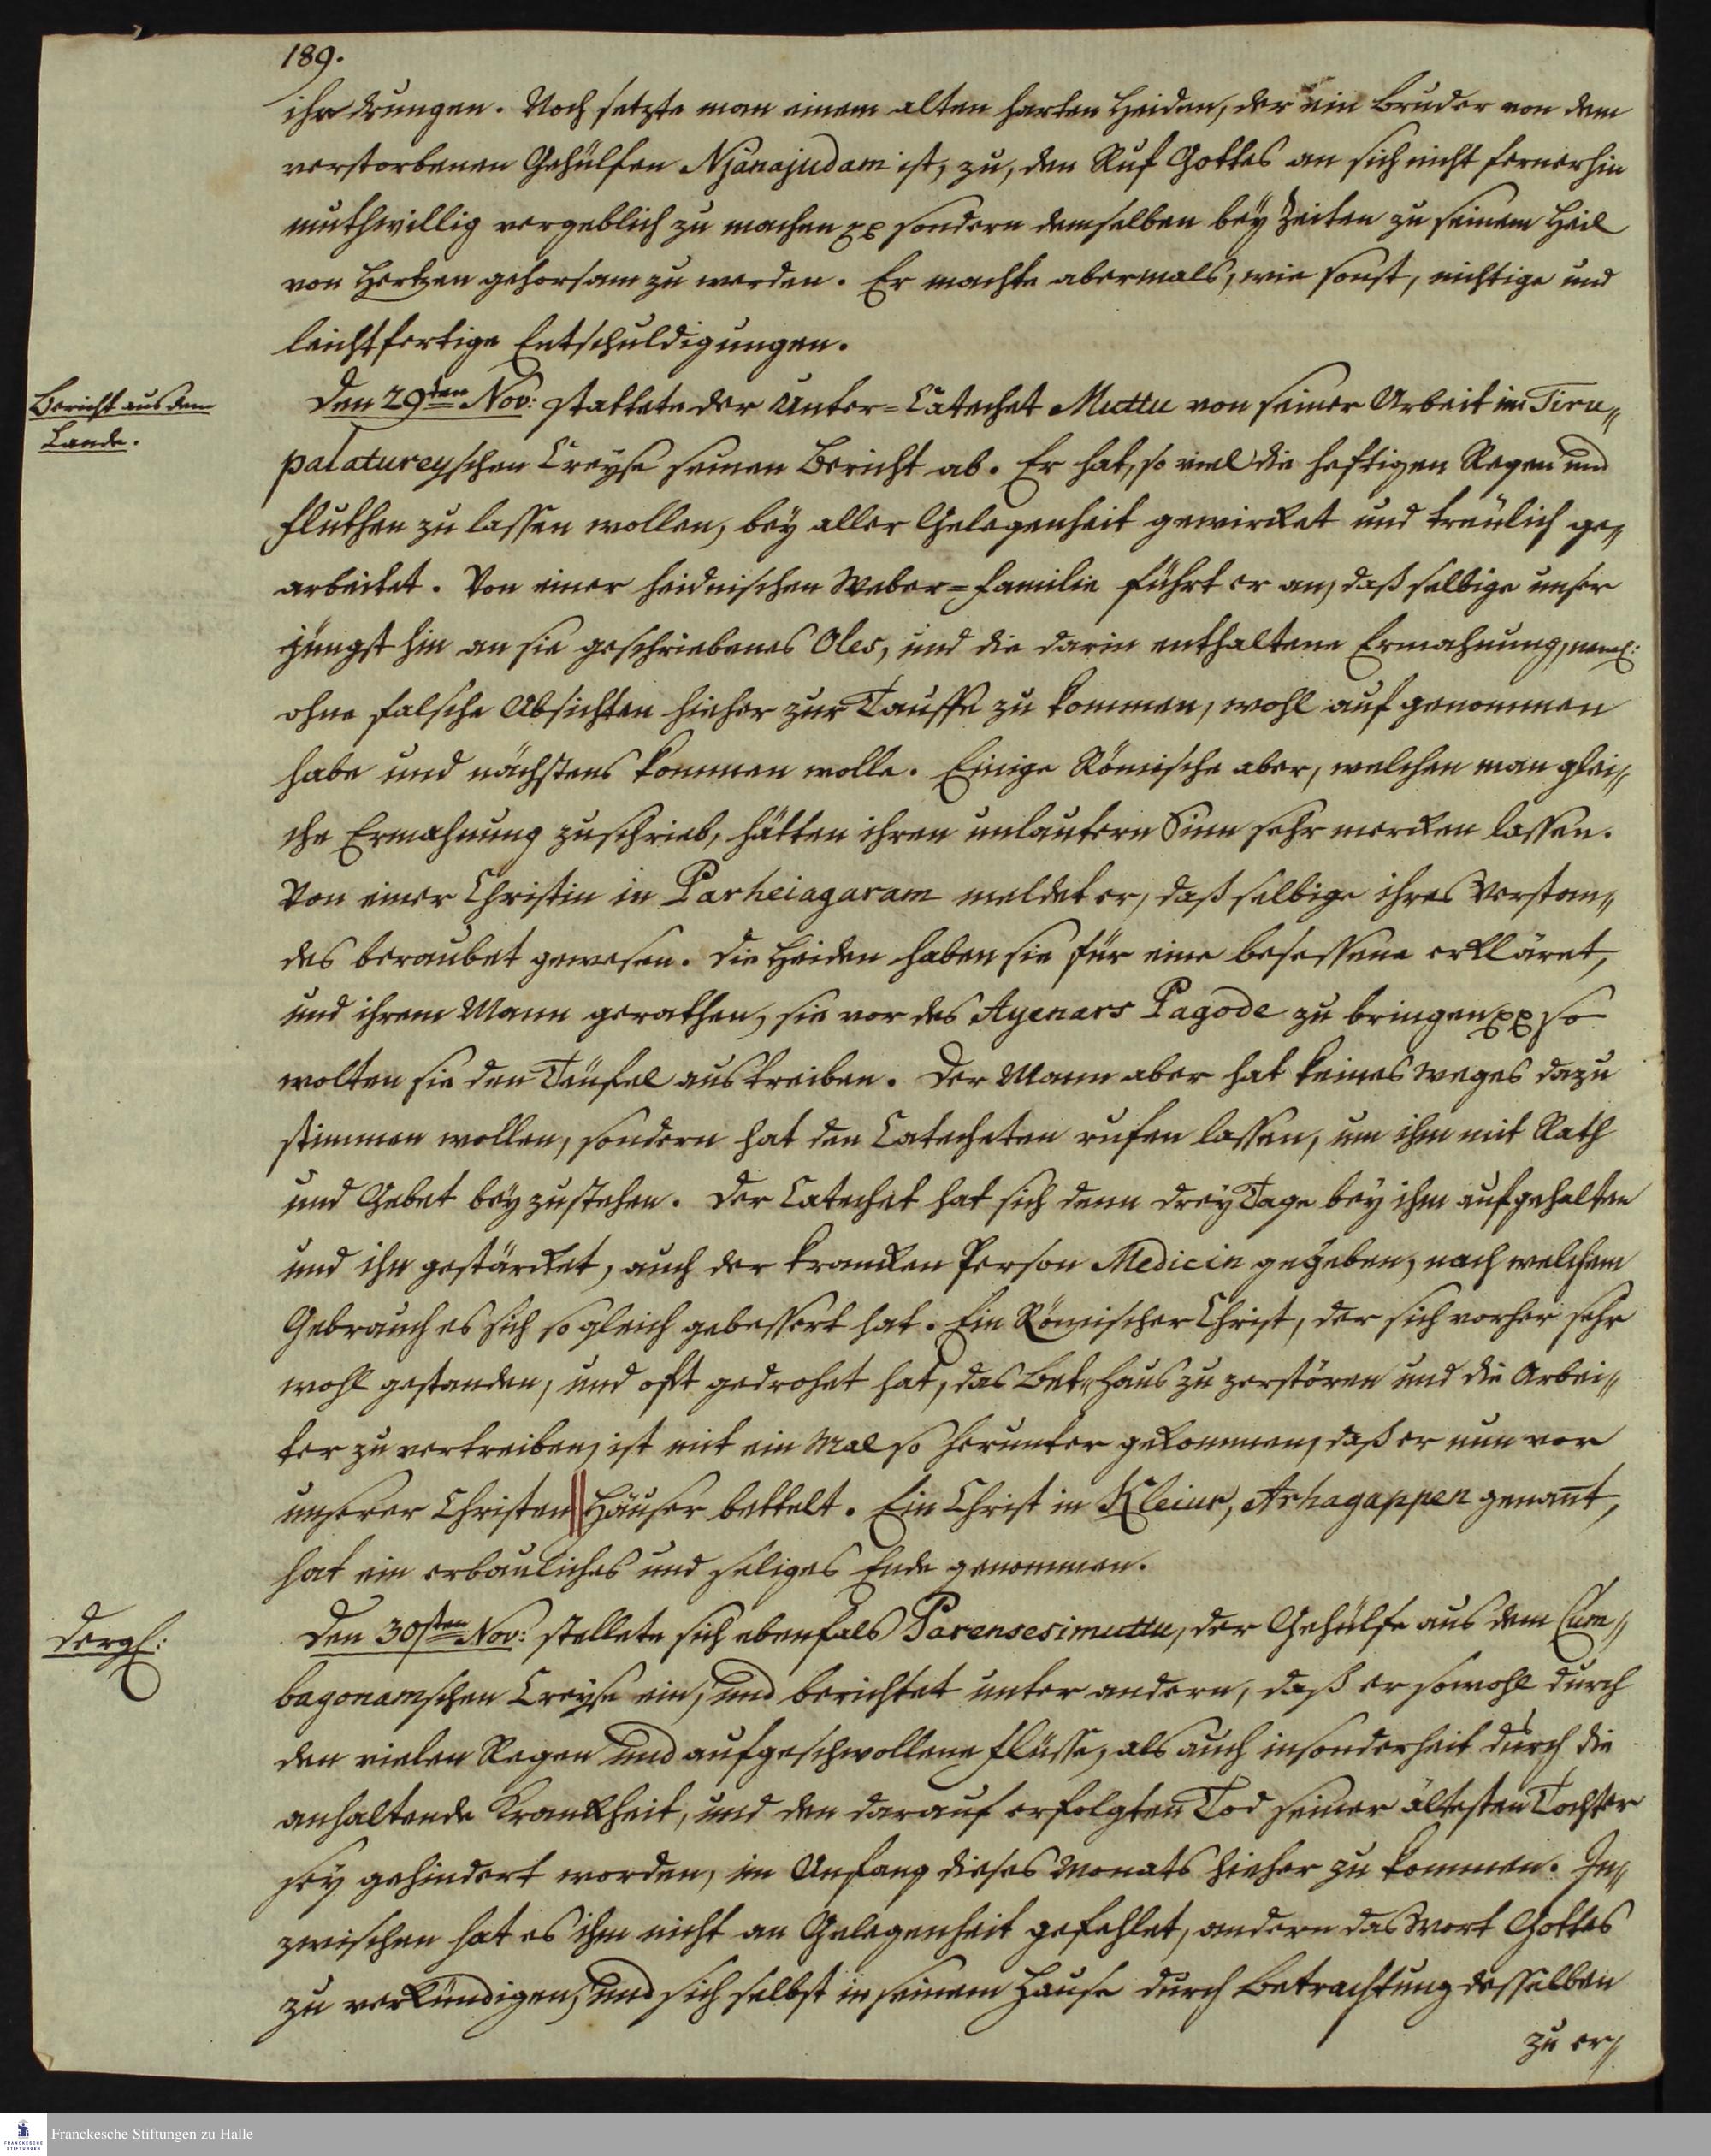 189.
ihr drungen. Noch setzte man einem alten harten Heiden, der ein Bruder von dem
verstorbenen Gehülfen Njanajudam ist, zu, den Ruf Gottes an sich nicht fernerhin
muthwillig vergeblich zu machen pp sondern demselben beÿ Zeiten zu seinem Heil
von Hertzen gehorsam zu werden. Er machte abermals, wie sonst, nichtige und
leichtfertige Entschuldigungen.
Bericht aus dem
Lande.
Den 29ten Nov: stattete der Unter=Catechet Muttu von seiner Arbeit im Tiru„
palatureyschen Creyse seinen Bericht ab. Er hat, so viel die heftigen Regen und
Fluthen zu lassen wollen, beÿ aller Gelegenheit gewircket und treülich ge„
arbeitet. Von einer heidnischen Weber=Familie führt er an, daß selbige unser
jüngst hin an sie geschriebenes Oles, und die darin enthaltene Ermahnung, neml:
ohne falsche Absichten hieher zur Tauffe zu kommen, wohl aufgenommen
habe und nächstens kommen wolle. Einige Römische aber, welchen man glei„
che Ermahnung zuschrieb, hätten ihren unlautern Sinn sehr mercken lassen.
Von einer Christin in Parheiagaram meldet er, daß selbige ihres Verstan„
des beraubet gewesen. Die Heiden haben sie für eine besessene erkläret,
und ihrem Mann gerathen, sie vor des Ayenars Pagode zu bringen pp so
wolten sie den Teüfel austreiben. Der Mann aber hat keines weges dazu
stimmen wollen, sondern hat den Catecheten rufen lassen, um ihm mit Rath
und Gebet beÿzustehen. Der Catechet hat sich denn dreÿ Tage beÿ ihm aufgehalten
und ihn gestärcket, auch der krancken Person Medicin gegeben, nach welchem
Gebrauch es sich so gleich gebessert hat. Ein Römischer Christ, der sich vorher sehr
wohl gestanden, und oft gedrohet hat, das Bet„Haus zu zerstören und die Arbei„
ter zu vertreiben, ist mit ein Mal so herunter gekommen, daß er nun vor
unserer Christen || Häuser bettelt. Ein Christ in Kleiur, Arhagappen genañt,
hat ein erbauliches und seliges Ende genommen.
Dergl:
Den 30sten Nov: stellete sich ebenfals Parensesimuttu, der Gehülfe aus dem Cum„
bagonamschen Creyse ein, und berichtet unter andern, daß er sowohl durch
den vielen Regen und aufgeschwollene Flüsse, als auch insonderheit durch die
anhaltende Kranckheit, und den darauf erfolgten Tod seiner ältesten Tochter
seÿ gehindert worden, im Anfang dieses Monats hieher zu kommen. In„
zwischen hat es ihm nicht an Gelegenheit gefehlet, andern das Wort Gottes
zu verkündigen, und sich selbst in seinem Hause durch Betrachtung desselben
zu er„
Franckesche Stiftungen zu Halle